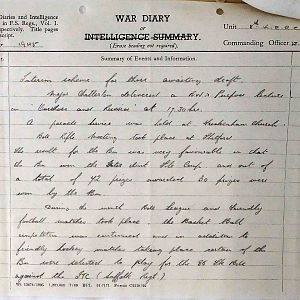 Diaries and Intelligence
in F.S. Regs., Vol. I.
respectively. Title pages
script.
WAR DIARY
OF
INTELLIGENCE SUMMARY.
(Erase heading not required).
Unit
Commanding Officer
1945.
Summary of Events and Information.
Interim scheme for those awaiting draft.
Major Chatterton delivered a Bde's Purpose lecture
on and Russia at 17.30 hrs.
A Parade Service was held at Church
Bde Rifle Meeting took place at Thetford
the result for the Bn was very favourable in that
the Bn won the Inter Unit Comp and out of
a total of 42 prizes awarded 30 prizes were
won by the Bn
During the month Bde League and friendly
football matches took place the Basket Ball
competition was continued and in addition to
friendly hockey matches taking place certain of the
Bn were selected to play for the Bde
against the ITC (Suffolk Regt)